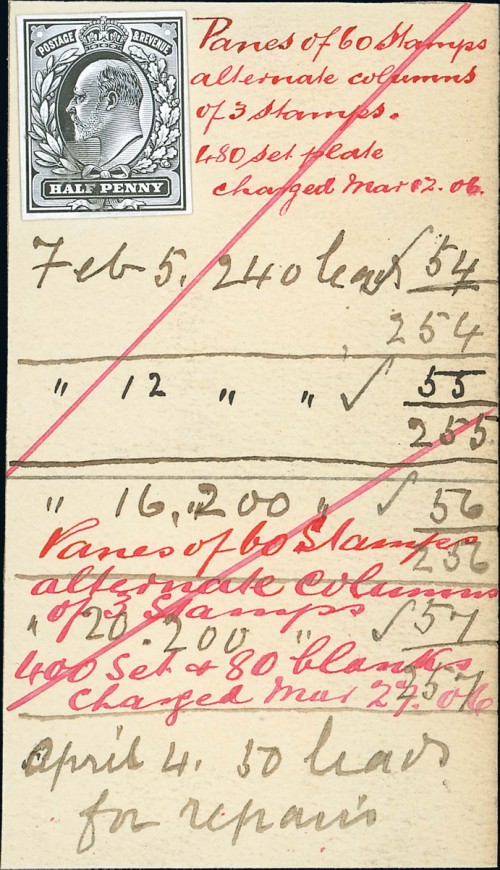 POSTAGE & REVENUE
HALF PENNY
Panes of 60 Stamps
alternate columns
of 3 stamps.
480 set plate
charged Mar 12. 06.
Feb 5. 240 leads ✓ 54
254
" 12 " " ✓ 55
255
" 16, " 200 " ✓ 56
256
Panes of 60 Stamps
alternate columns
of 3 Stamps
" 20. 200 " ✓ 57
257
400 set & 80 blanks
charged Mar 27. 06
April 4. 50 leads
for repairs